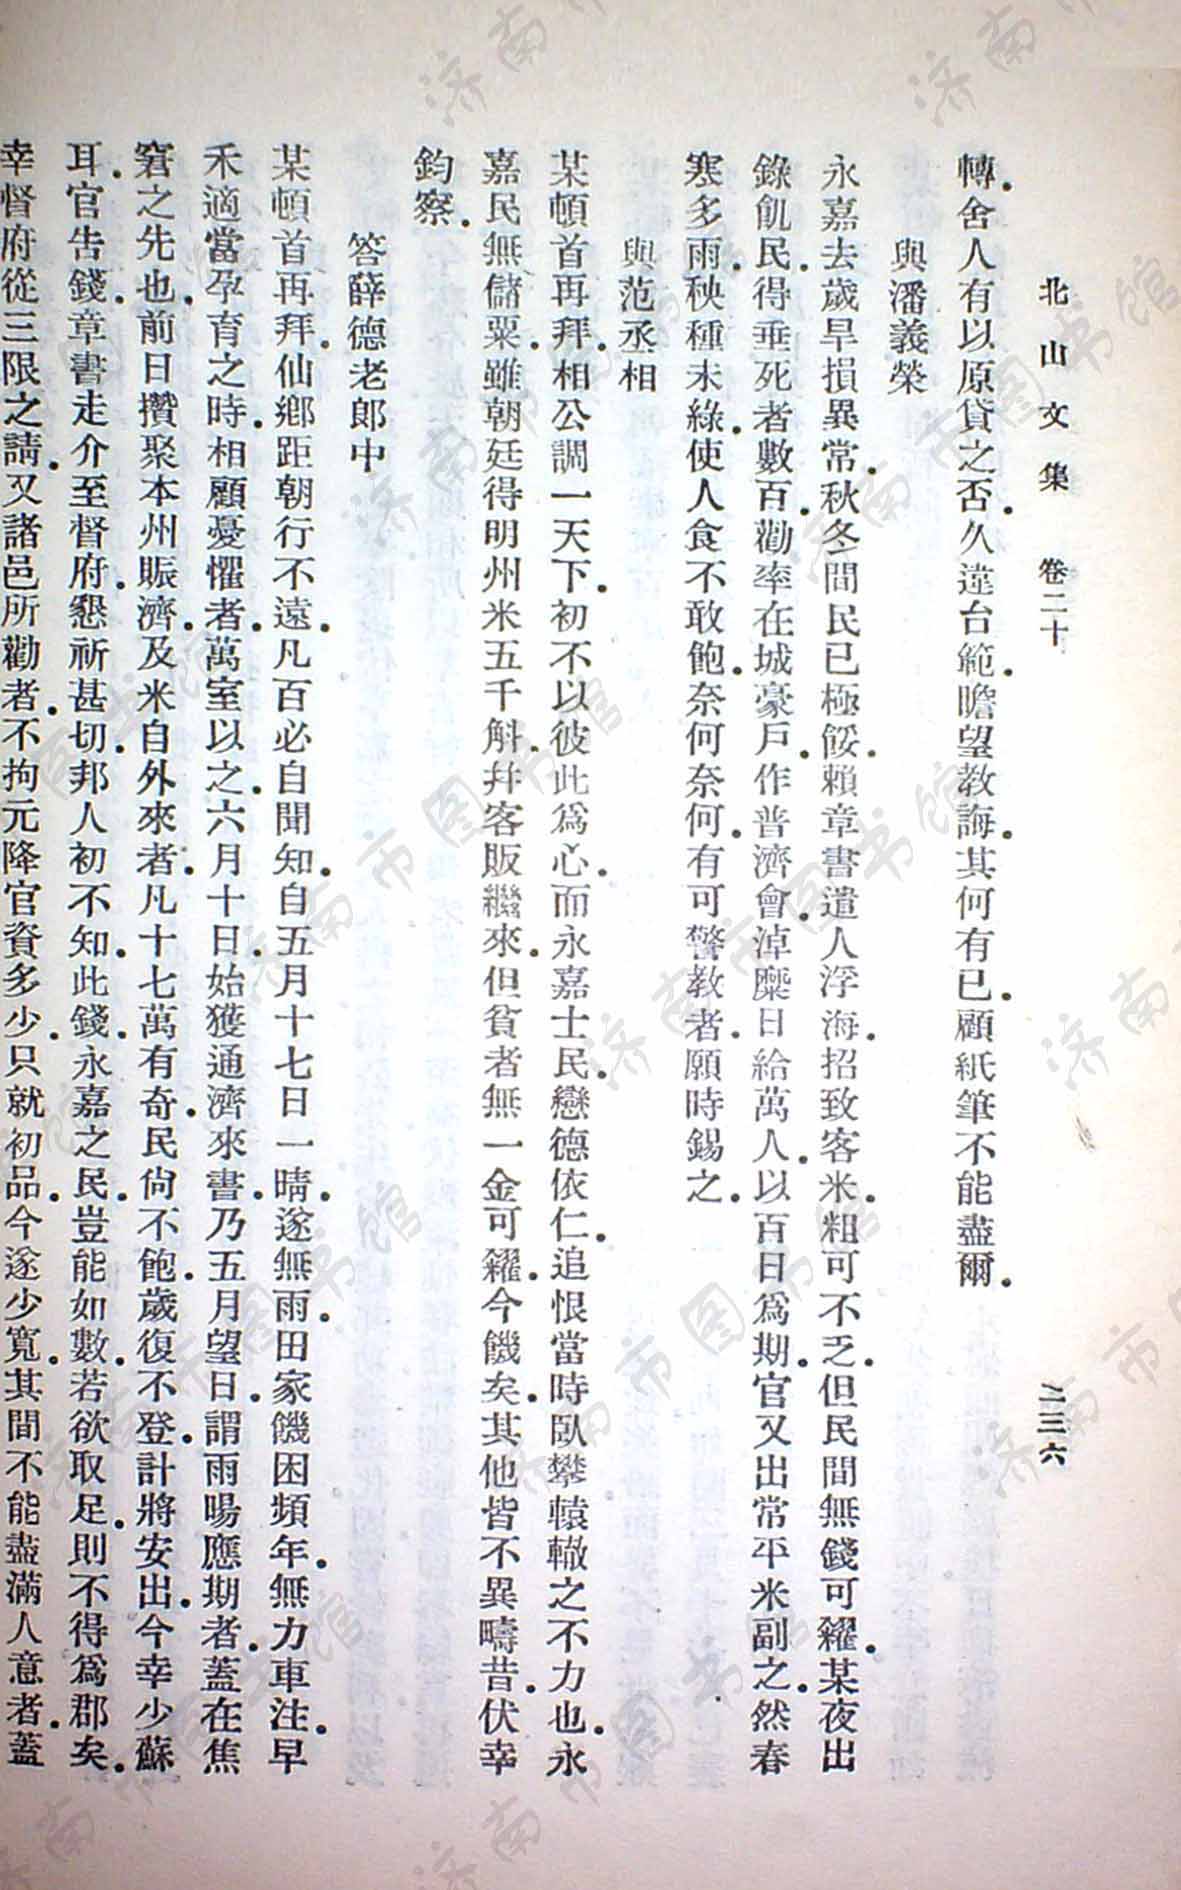 北山文集 卷二十 二三六
轉.舍人有以原貸之否.久違台範.瞻望教誨.其何有已.顧紙筆不能盡爾.
與潘義榮
永嘉去歲旱損異常.秋冬間民已極餒.賴章書遣人浮海.招致客米.粗可不乏.但民間無錢可糴.某夜出
錄飢民.得垂死者數百.勸率在城豪戶.作普濟會.淖糜日給萬人.以百日爲期.官又出常平米副之.然春
寒多雨.秧種未綠.使人食不敢飽.奈何奈何.有可警教者.願時錫之.
與范丞相
某頓首再拜.相公調一天下.初不以彼此爲心.而永嘉士民.戀德依仁.追恨當時臥攀轅轍之不力也.永
嘉民無儲粟.雖朝廷得明州米五千斛.幷客販繼來.但貧者無一金可糴.今饑矣.其他皆不異疇昔.伏幸
鈞察.
答薛德老郎中
某頓首再拜.仙鄉距朝行不遠.凡百必自聞知.自五月十七日一晴.遂無雨.田家饑困頻年.無力車注.早
禾適當孕育之時.相顧憂懼者.萬室以之.六月十日.始獲通濟.來書.乃五月望日.謂雨暘應期者.蓋在焦
窘之先也.前日攢聚本州賑濟.及米自外來者.凡十七萬有奇.民尙不飽.歲復不登.計將安出.今幸少蘇
耳.官告錢.章書走介至督府.懇祈甚切.邦人初不知.此錢.永嘉之民.豈能如數.若欲取足.則不得爲郡矣.
幸督府從三限之請.又諸邑所勸者.不拘元降官資多少.只就初品.今遂少寬.其間不能盡滿人意者.蓋